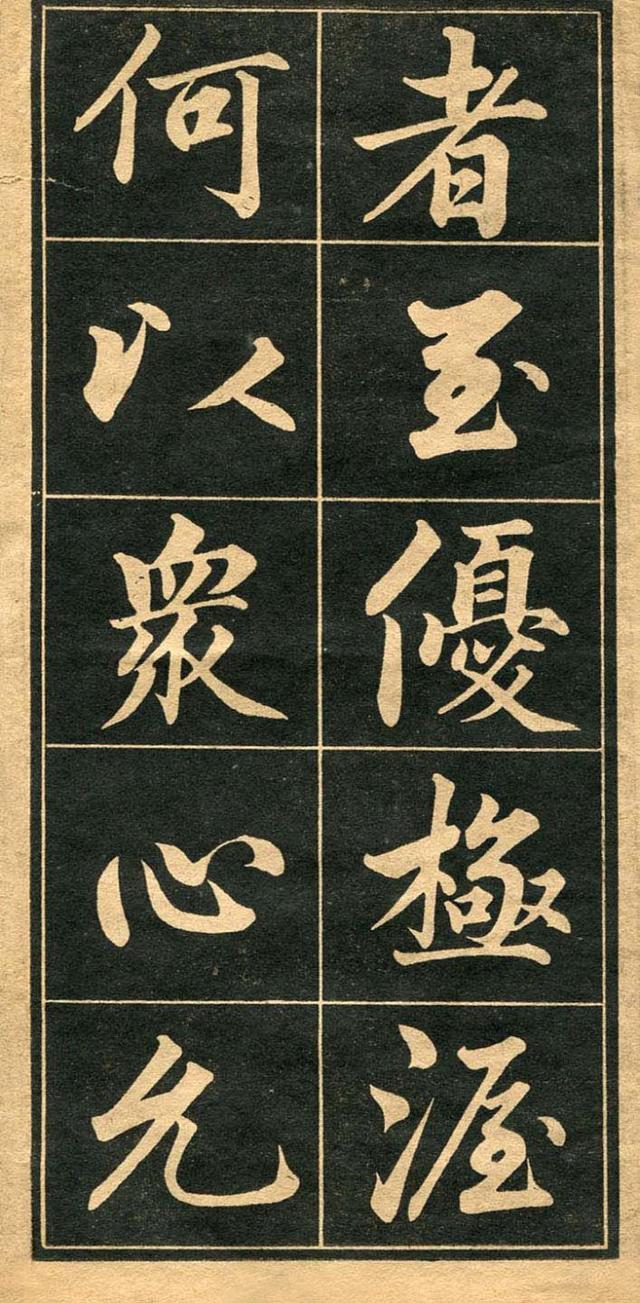 者至優極渥
何以衆心允